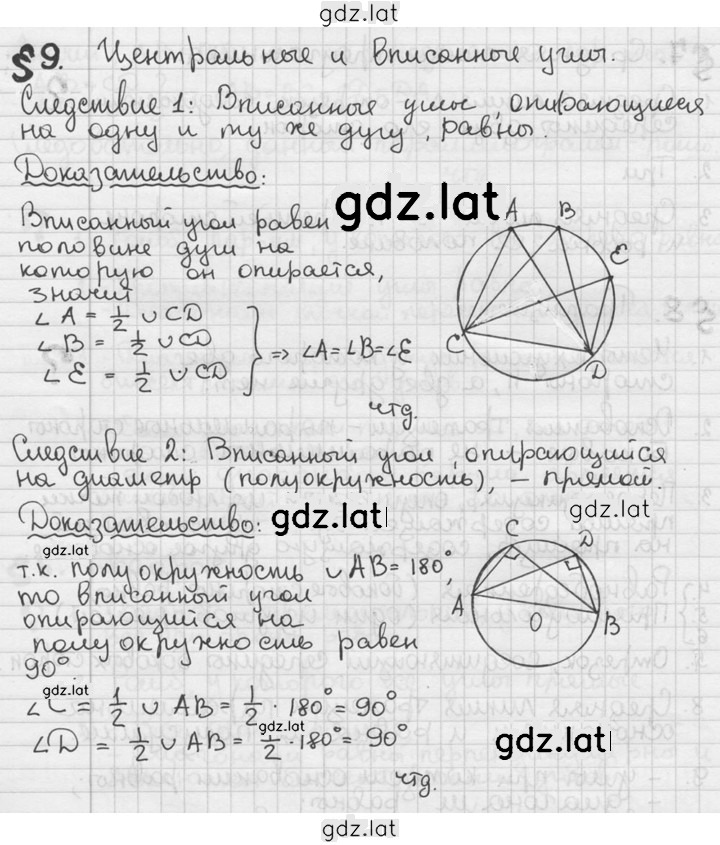 gdz.lat
§ 9. Центральные и вписанные углы.
Следствие 1: Вписанные углы, опирающиеся
на одну и ту же дугу, равны.
Доказательство:
gdz.lat
Вписанный угол равен
половине дуги на
которую он опирается,
значит
∠A = 1/2 ∪CD
∠B = 1/2 ∪CD
∠E = 1/2 ∪CD
⇒ ∠A=∠B=∠E
чтд.
A B E C D
Следствие 2: Вписанный угол, опирающийся
на диаметр (полуокружность), – прямой.
Доказательство:
gdz.lat
gdz.lat
gdz.lat
т.к. полуокружность ∪AB=180°,
то вписанный угол
опирающийся на
полуокружность равен
90°.
C D A O B
gdz.lat
∠C = 1/2 ∪AB = 1/2 · 180° = 90°
gdz.lat
∠D = 1/2 ∪AB = 1/2 · 180° = 90°
gdz.lat
чтд.
gdz.lat